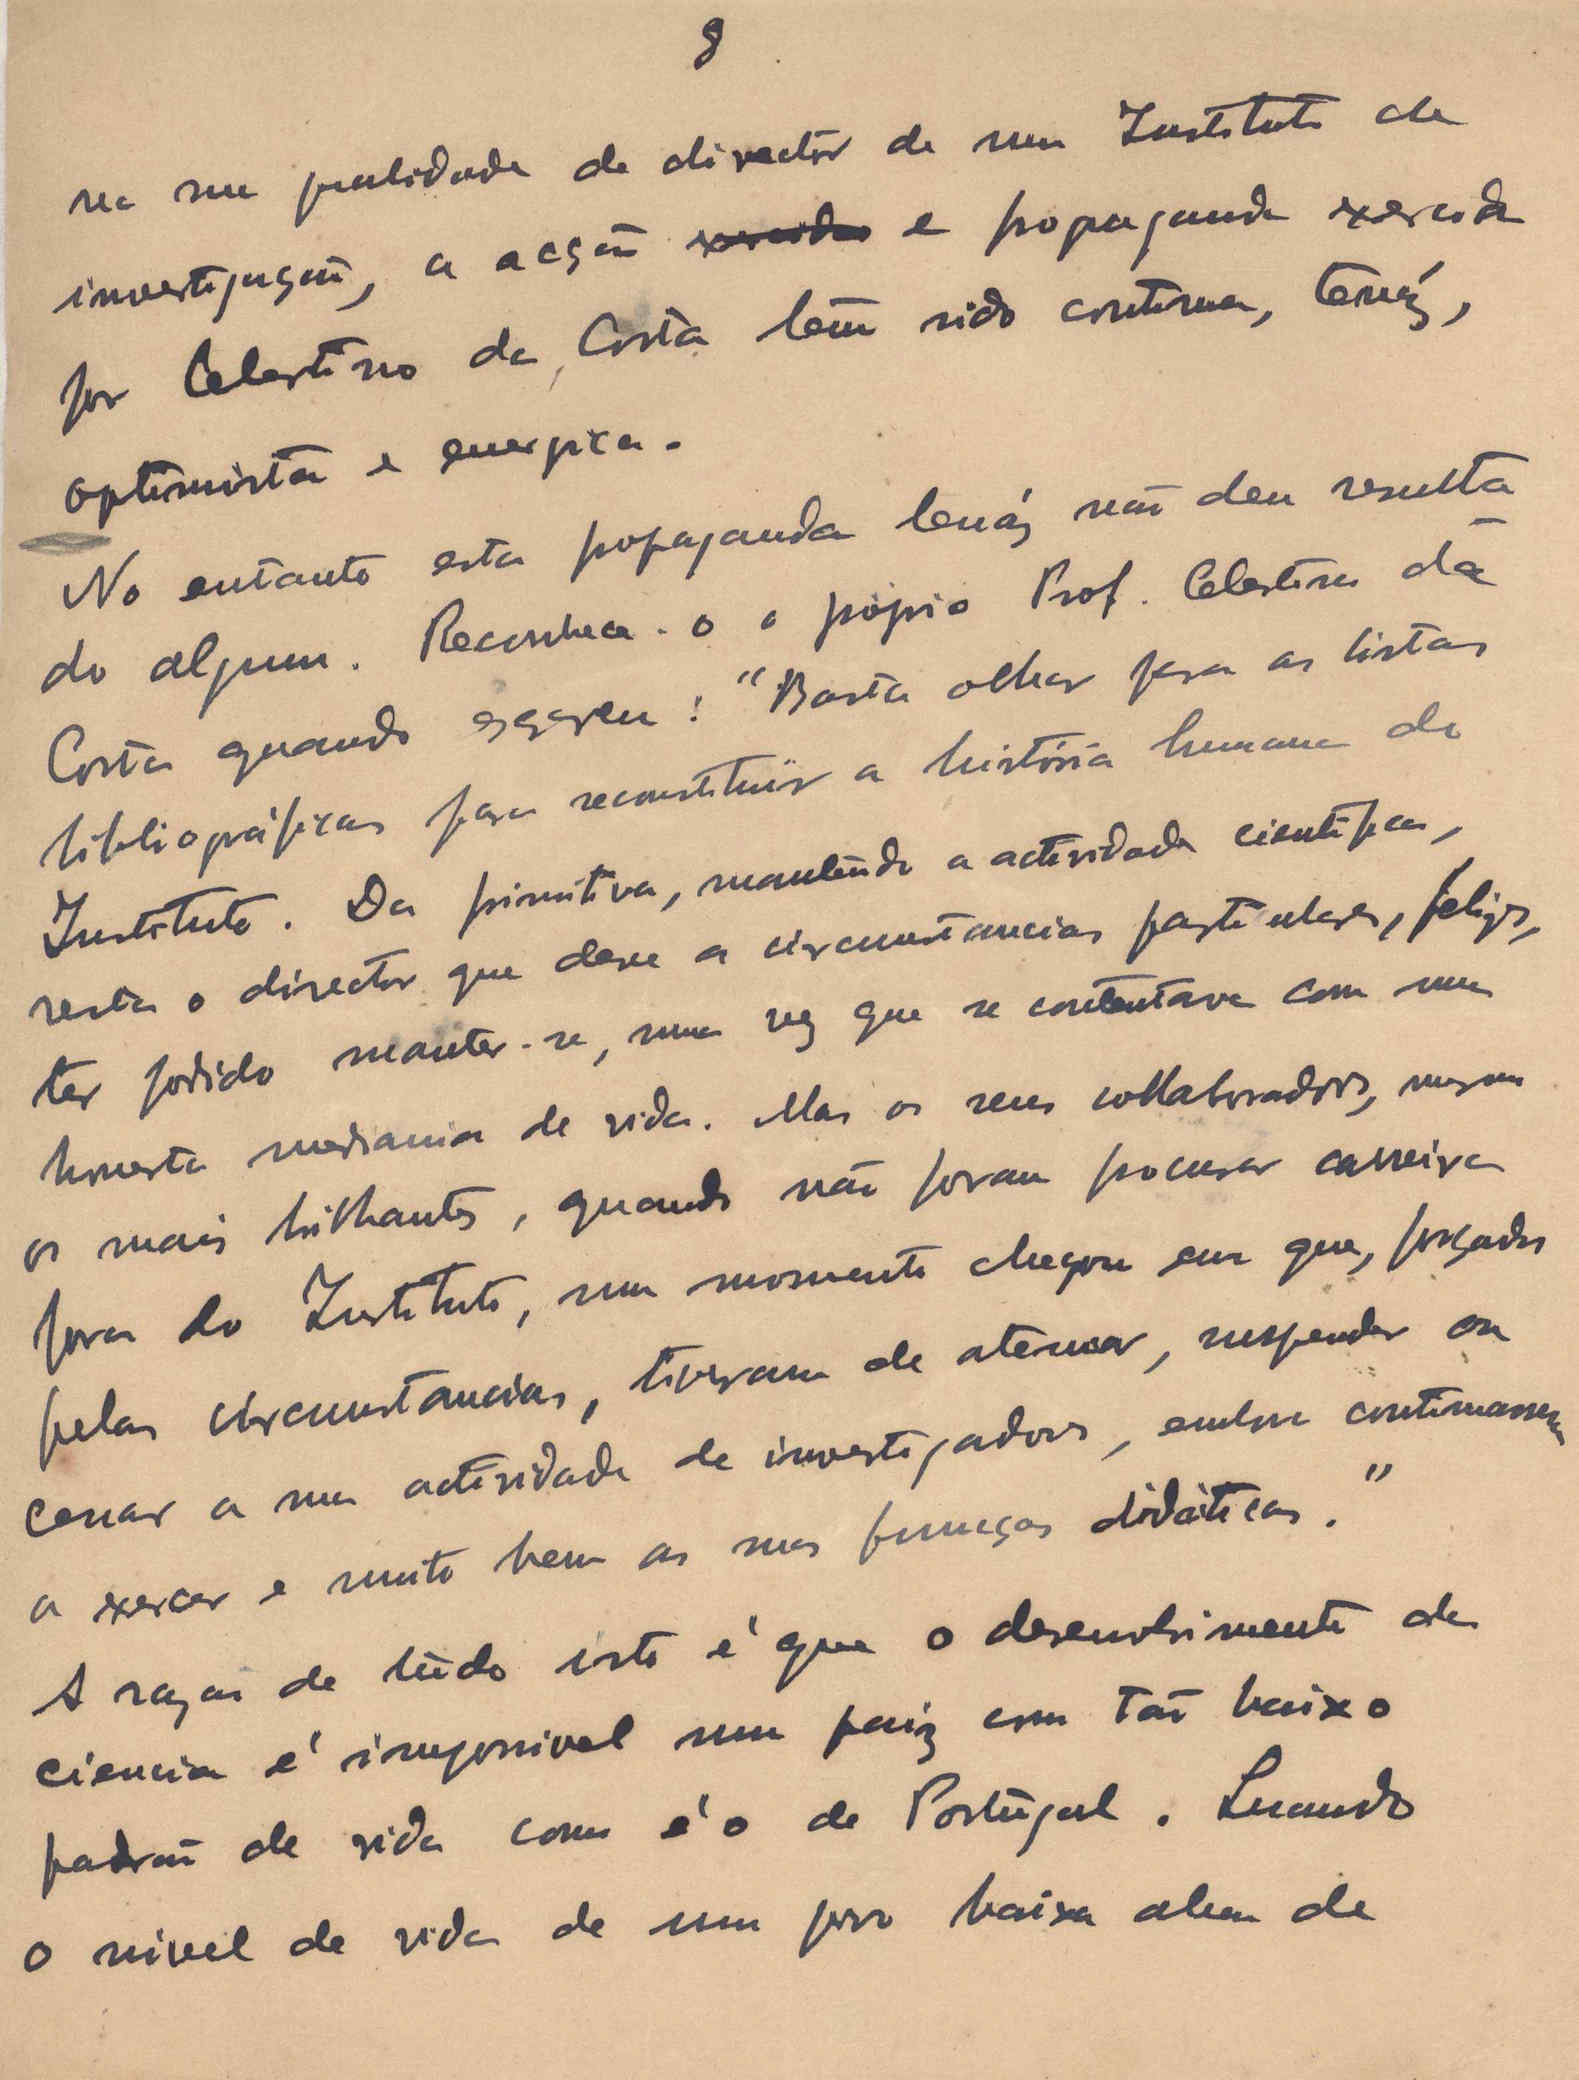 8
na sua qualidade de director de um Instituto de
investigação, a acção exercida e propaganda exercida
por Celestino da Costa tem sido continua, tenáz,
optimista e energica.
No entanto esta propaganda tenáz não deu resulta
do algum. Reconhece-o o próprio Prof. Celestino da
Costa quando escreveu: "Basta olhar para as listas
bibliográficas para reconstituir a história humana do
Instituto. Da primitiva, mantendo a actividade cientifica,
resta o director que deve a circumstancias particulares, felizes,
ter podido manter-se, uma vez que se contentava com uma
honesta mediania de vida. Mas os seus collaboradores, mesmo
os mais brilhantes, quando não foram procurar carreira
fora do Instituto, um momento chegou em que, forçados
pelas circumstancias, tiveram de atenuar, suspender ou
cessar a sua actividade de investigadores, embora continuassem
a exercer e muito bem as suas funções didáticas."
A razão de tudo isto é que o desenvolvimento da
ciencia é impossivel num paiz com tão baixo
padrão de vida como é o de Portugal. Quando
o nivel de vida de um povo baixa alem de